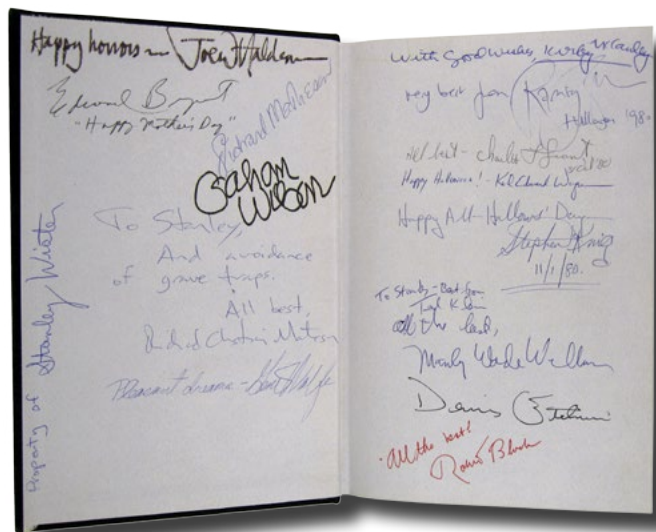 Happy horrors — Joe Haldeman
Edward Bryant
"Happy Mother's Day"
Richard McKenna
Gahan
Wilson
To Stanley,
And avoidance
of grave traps.
All best,
Richard Christian Matheson
Pleasant dreams -
Property of Stanley Wiater
With Good Wishes, Kirby McCauley
very best from Ramsey
Halloween '80
All best - Charles L Grant
Happy Halloween! - Karl Edward Wagner
Happy All-Hallows' Day
Stephen King
11/1/80.
To Stanley - Best from
Ted Klein
All the
Manly Wade Wellman
Dennis Etchison
"All the best!
Robert Bloch